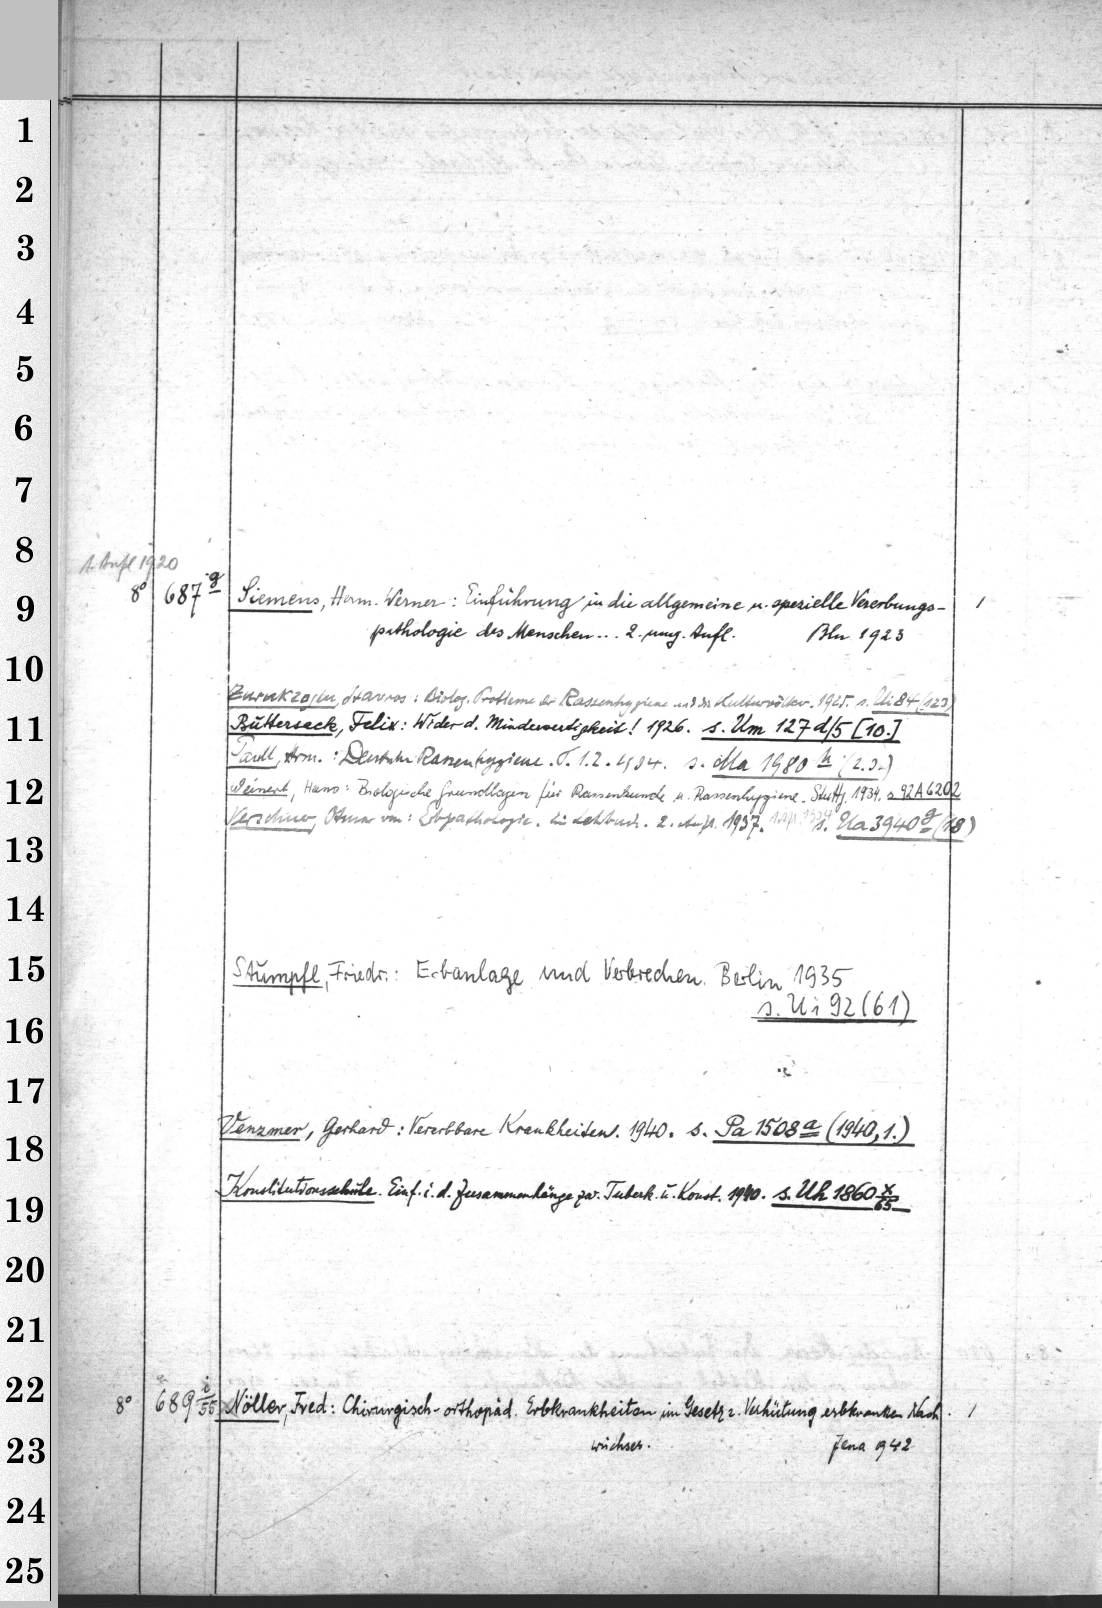 1
2
3
4
5
6
7
8
1. Aufl 1920
9
8° 687 g Siemens, Herm. Werner: Einführung in die allgemeine u. spezielle Vererbungs- 1
pathologie des Menschen... 2. umg. Aufl. Bln 1923
10
Zurukzoglu, Stavros: Biolog. Probleme der Rassenhygiene und die Kulturvölker. 1925. s. Ui 84 (123)
11
Buttersack, Felix: Wider d. Minderwertigkeit! 1926. s. Um 127 d/5 [10.]
Arm.: Deutsche Rassenhygiene. T. 1.2. s. Ma 1980 h (2.3.)
12
Weinert, Hans: Biologische Grundlagen für Rassenkunde u. Rassenhygiene. Stuttg. 1934. s 92 A 6202
Verschuer, Otmar von: Erbpathologie. Ein Lehrbuch. 2. Aufl. 1937. s. Ua 3940 g (18)
13
14
15
Stumpfl, Friedr.: Erbanlage und Verbrechen. Berlin 1935
s. Ui 92 (61)
16
17
Venzmer, Gerhard: Vererbbare Krankheiten. 1940. s. Pa 1508 a (1940, 1.)
18
Konstitutionsschule. Einf. i. d. Zusammenhänge zw. Tuberk. u. Konst. 1940. s. Uh 1860 x/65
19
20
21
22
8° 689 i/55 Nöller, Fred: Chirurgisch-orthopäd. Erbkrankheiten im Gesetz z. Verhütung erbkranken Nach- 1
wuchses. Jena 1942
23
24
25